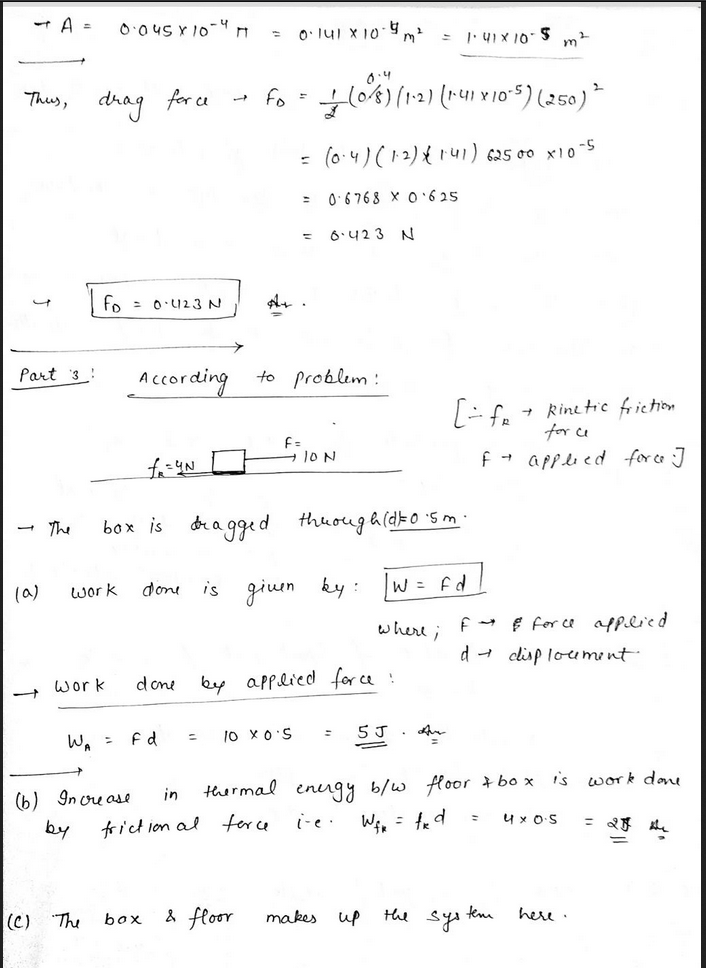 → A = 0.045 × 10⁻⁴ π = 0.141 × 10⁻⁴ m² = 1.41 × 10⁻⁵ m²
Thus, drag force → F_D = 1/2 (0.8) (1.2) (1.41 × 10⁻⁵) (250)²
0.4
= (0.4) (1.2) (1.41) 62500 × 10⁻⁵
= 0.6768 × 0.625
= 0.423 N
→ F_D = 0.423 N Ans.
Part 3: According to problem:
[∵ f_k → kinetic friction
force
F → applied force]
F =
f_k = 4N → 10 N
→ The box is dragged through (d) = 0.5 m.
(a) work done is given by: W = Fd
where; F → force applied
d → displacement.
→ Work done by applied force:
W_A = Fd = 10 × 0.5 = 5 J. Ans
(b) Increase in thermal energy b/w floor & box is work done
by frictional force i.e. W_fk = f_k d = 4 × 0.5 = 2J Ans
(C) The box & floor makes up the system here.